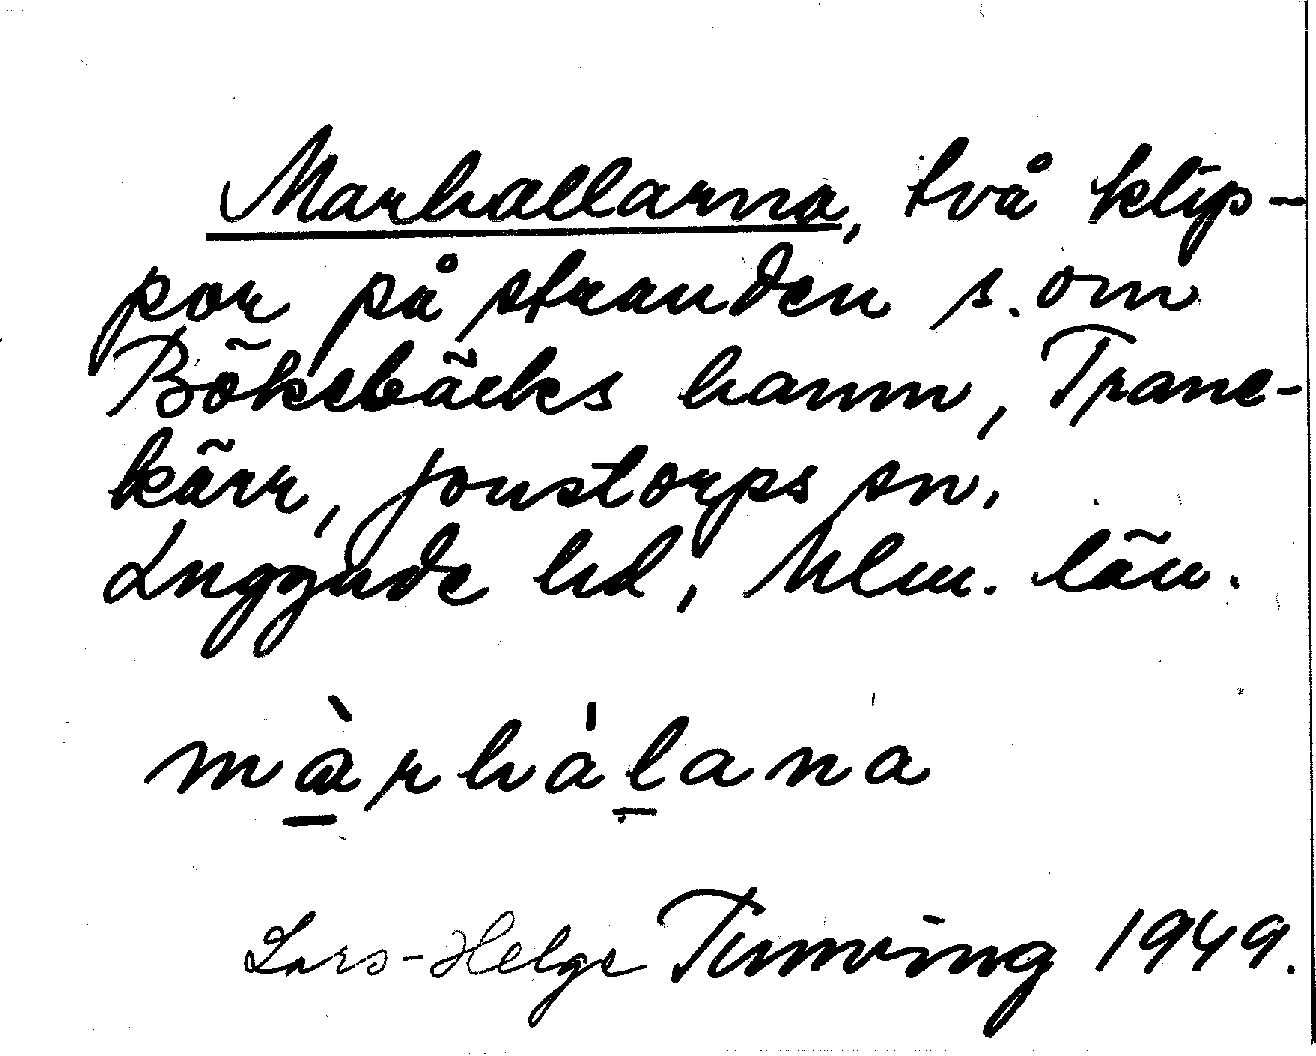 Marhallarna, två klip-
por på stranden s. om
Bökebäcks hamn, Trane-
kärr, Jonstorps sn.
Luggude hd, Mlm. län.
màrhálana
Lars-Helge Tunving 1949.